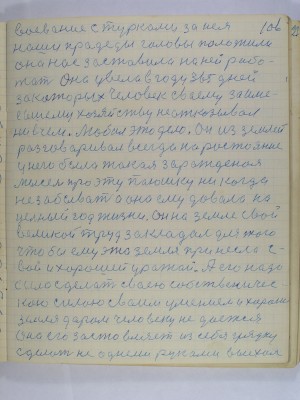 106
воевания с турками за нея
наши прадеды головы положили
она нас заставила на ней рабо-
тат Она цвела в году 365 дней
за которых человек своему
ему хозяйству не отказывал
ни в чем. Любил это дело. Он из землей
разговаривал всегда на ростояние
у него была такая зарожденая
мысел про эту пашку никогда
не забсыват а она ему довала на
целный год жизни. Он на земле свой
великой труд закладал для того
чтобы ему эта земля принесла с-
вой и хороший урожай. А его надо
было сделат своею собственичес-
кою силою своим умением и хараше
земля даром человеку не дается
Она его заставляет из себя грядку
сделат не одними руками